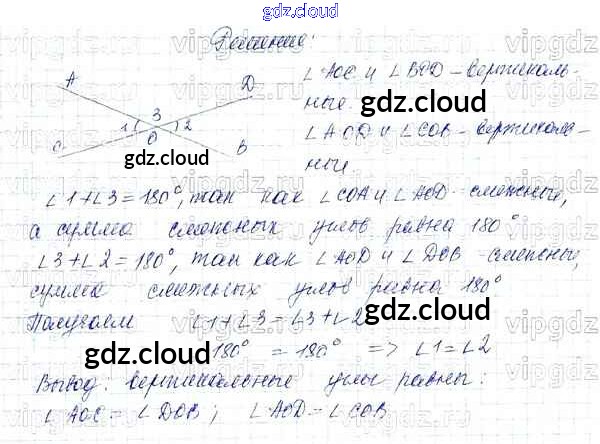 gdz.cloud
Решение:
A D ∠AOC и ∠BOD – вертикаль-
ные.
3
1 2 ∠AOD и ∠COB – вертикаль-
O
C B ные
gdz.cloud
gdz.cloud
∠1+∠3=180°, так как ∠COA и ∠AOD – смежные,
а сумма смежных углов равна 180°
∠3+∠2=180°, так как ∠AOD и ∠DOB – смежные,
сумма смежных углов равна 180°
gdz.cloud
Получаем ∠1+∠3=∠3+∠2
gdz.cloud
180° = 180° => ∠1=∠2
Вывод: вертикальные углы равны:
∠AOC = ∠DOB; ∠AOD = ∠COB